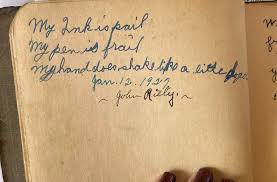 My Ink is pail
My pen is frail
My hand does shake like a little dogs
Jan. 12. 1927
~ John Rizly. ~